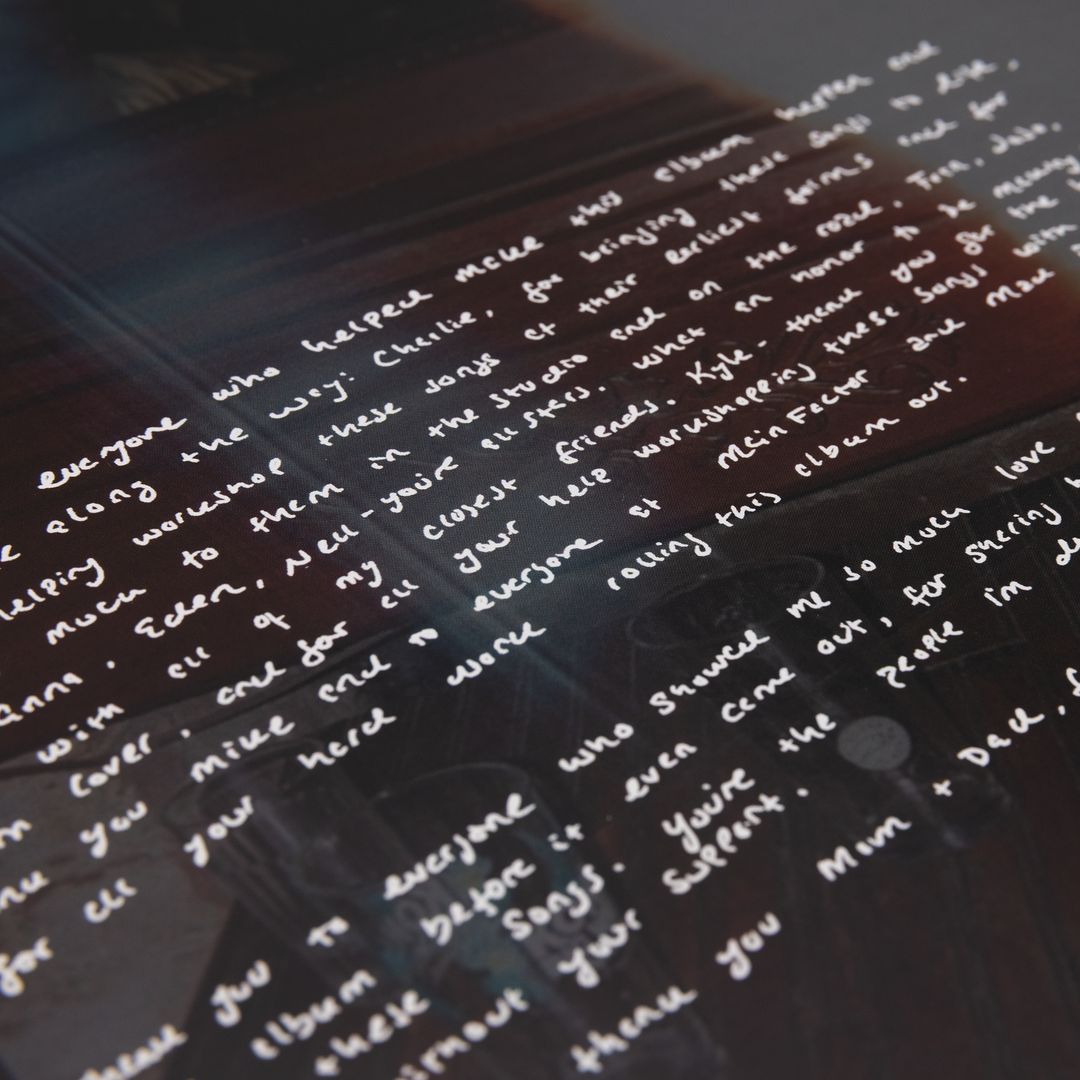 everyone who helped make this album happen and
along the way: Charlie, for bringing these songs to life,
helping workshop these songs at their earliest forms and for
much to them in the studio and on the road. Fern, Jobo,
anna. Eden, Nell - you're all stars. what an honor to be making
with all of my closest friends. Kyle - thank you for the
cover, and for all your help workshopping these songs with
you mike and to everyone at mainFactor and Mack
for all your hard work rolling this album out.
you to everyone who showed me so much love
album before it even came out, for sharing
these songs. you're the people im
your support.
thank you Mom + Dad,